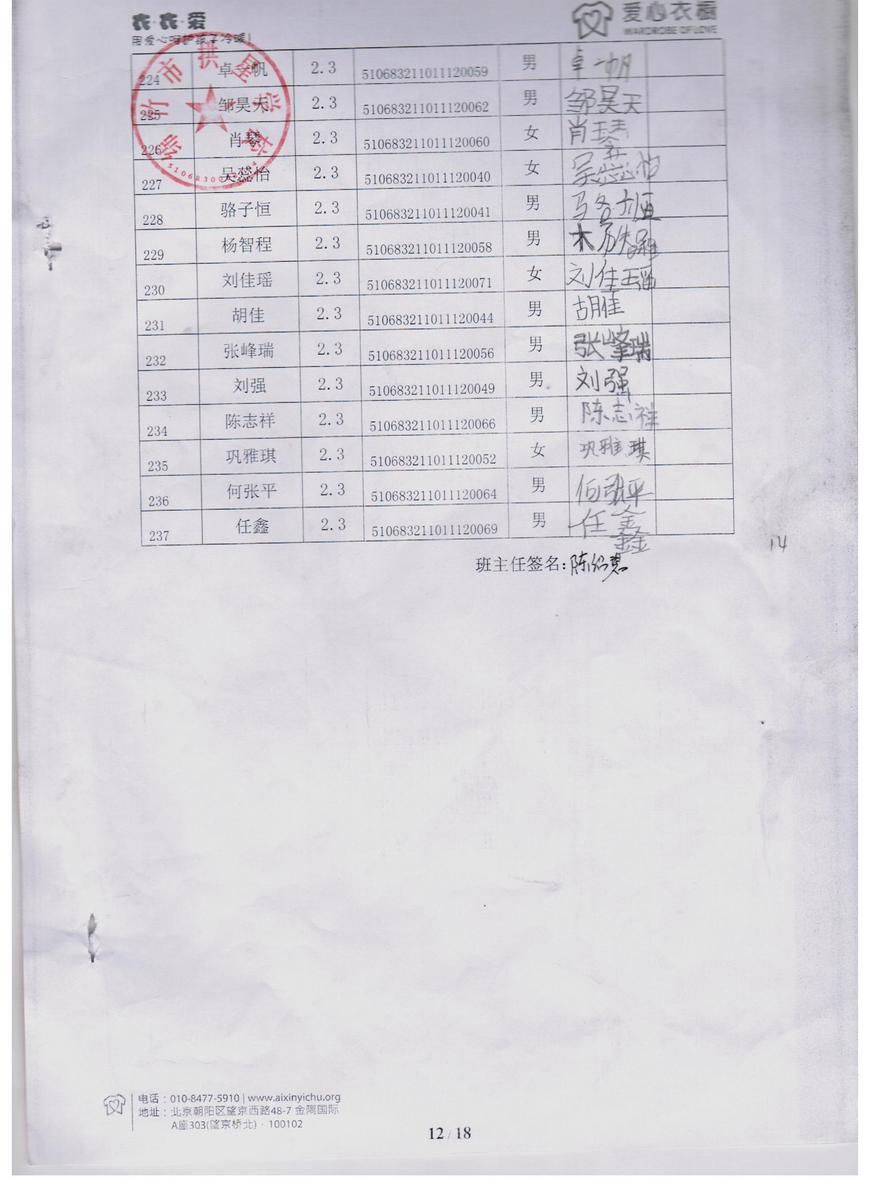 衣·衣·爱
用爱心呵护孩子冷暖!
爱心衣橱
WARDROBE OF LOVE
绵竹市拱星学校
224 卓一帆 2.3 510683211011120059 男 卓一帆
225 邹昊天 2.3 510683211011120062 男 邹昊天
226 肖琴 2.3 510683211011120060 女 肖琴
227 吴蕊怡 2.3 510683211011120040 女 吴蕊怡
228 骆子恒 2.3 510683211011120041 男 骆子恒
229 杨智程 2.3 510683211011120058 男 杨智程
230 刘佳瑶 2.3 510683211011120071 女 刘佳瑶
231 胡佳 2.3 510683211011120044 男 胡佳
232 张峰瑞 2.3 510683211011120056 男 张峰瑞
233 刘强 2.3 510683211011120049 男 刘强
234 陈志祥 2.3 510683211011120066 男 陈志祥
235 巩雅琪 2.3 510683211011120052 女 巩雅琪
236 何张平 2.3 510683211011120064 男 何张平
237 任鑫 2.3 510683211011120069 男 任鑫
14
班主任签名:
电话：010-8477-5910 | www.aixinyichu.org
地址：北京朝阳区望京西路48-7 金隅国际
A座303(望京桥北) · 100102
12 / 18